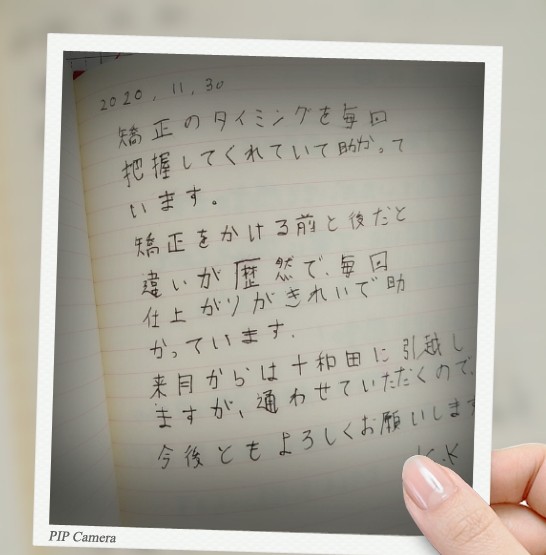 2020.11.30
矯正のタイミングを毎回
把握してくれていて助かって
います。
矯正をかける前と後だと
違いが歴然で、毎回
仕上がりがきれいで助
かっています.
来月からは十和田に引越し
ますが、通わせていただくので、
今後ともよろしくお願いします
K.K
PIP Camera